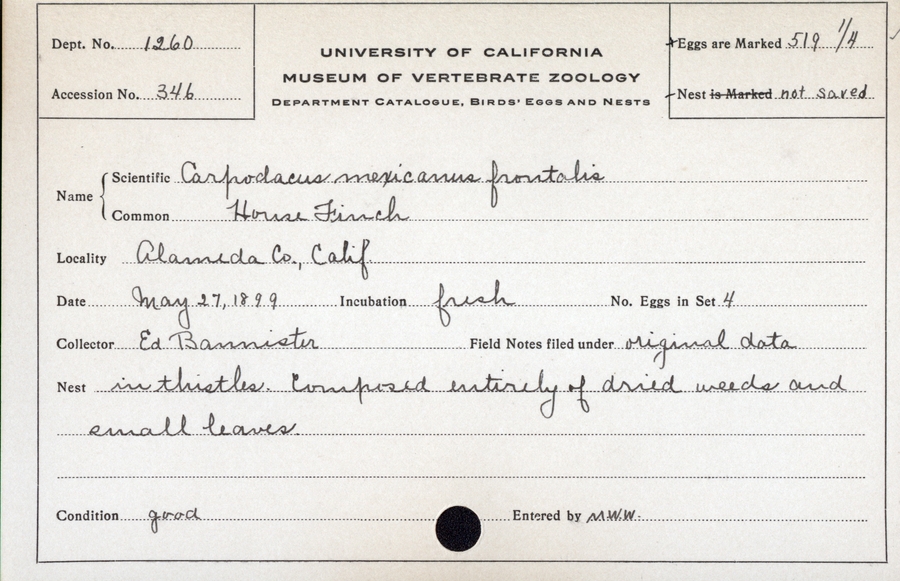 Dept. No. 1260
Accession No. 346
UNIVERSITY OF CALIFORNIA
MUSEUM OF VERTEBRATE ZOOLOGY
DEPARTMENT CATALOGUE, BIRDS' EGGS AND NESTS
Eggs are Marked 519 1/4
Nest is Marked not saved
Name
Scientific Carpodacus mexicanus frontalis
Common House Finch
Locality Alameda Co., Calif.
Date May 27, 1899 Incubation fresh No. Eggs in Set 4
Collector Ed Bannister Field Notes filed under original data
Nest in thistles. Composed entirely of dried weeds and
small leaves.
Condition good Entered by M.W.W.